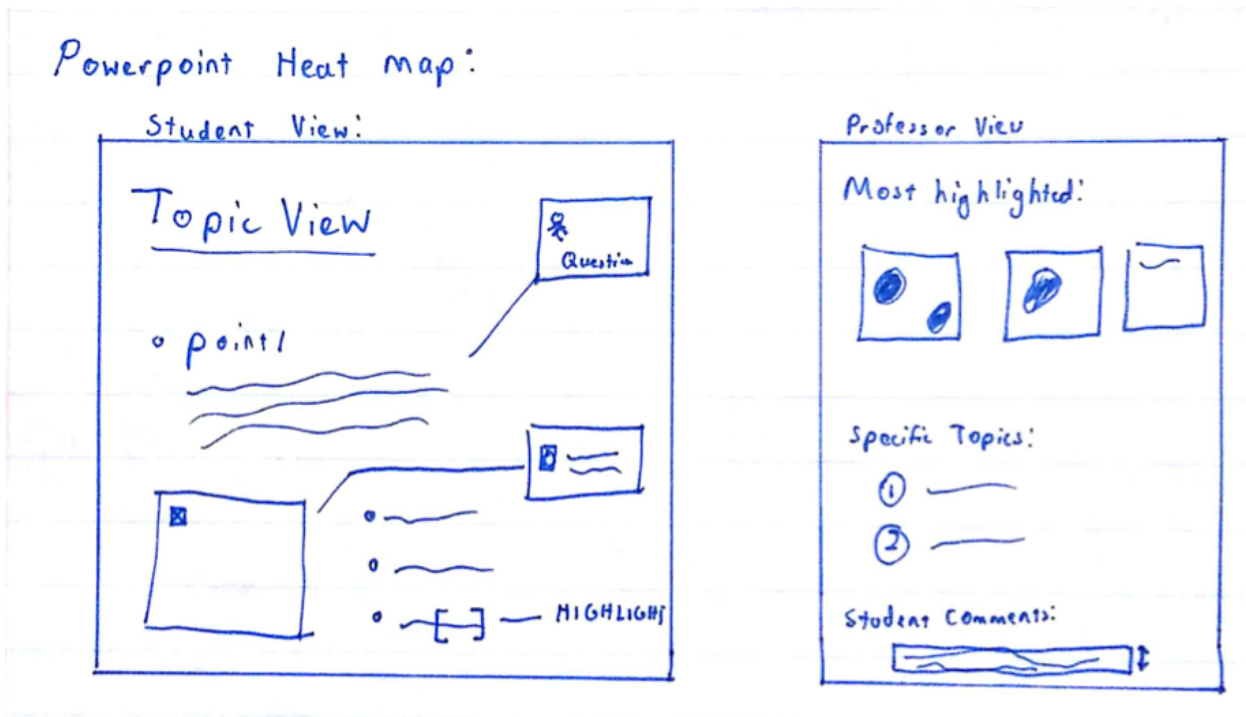 Powerpoint Heat map:
Student View:
Topic View
Question
point 1
HIGHLIGHT
Professor View
Most highlighted:
Specific Topics:
1
2
Student Comments: